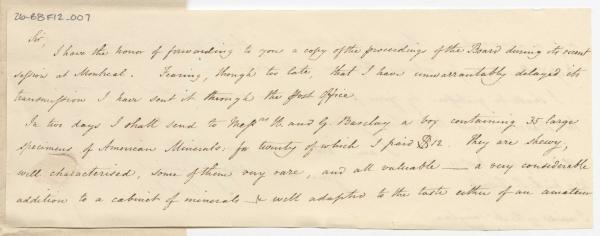 26-BBF12_007
Sir,
I have the honor of forwarding to you a copy of the proceedings of the Board during its recent
session at Montreal. Fearing, though too late, that I have unwarrantably delayed its
transmission I have sent it through the Post Office
In two days I shall send to Messrs H. and G. Barclay a box containing 35 large
specimens of American Minerals: for twenty of which I paid $12. They are shewy,
well characterised, some of them very rare, and all valuable — a very considerable
addition to a cabinet of minerals — & well adapted to the taste either of an amateur